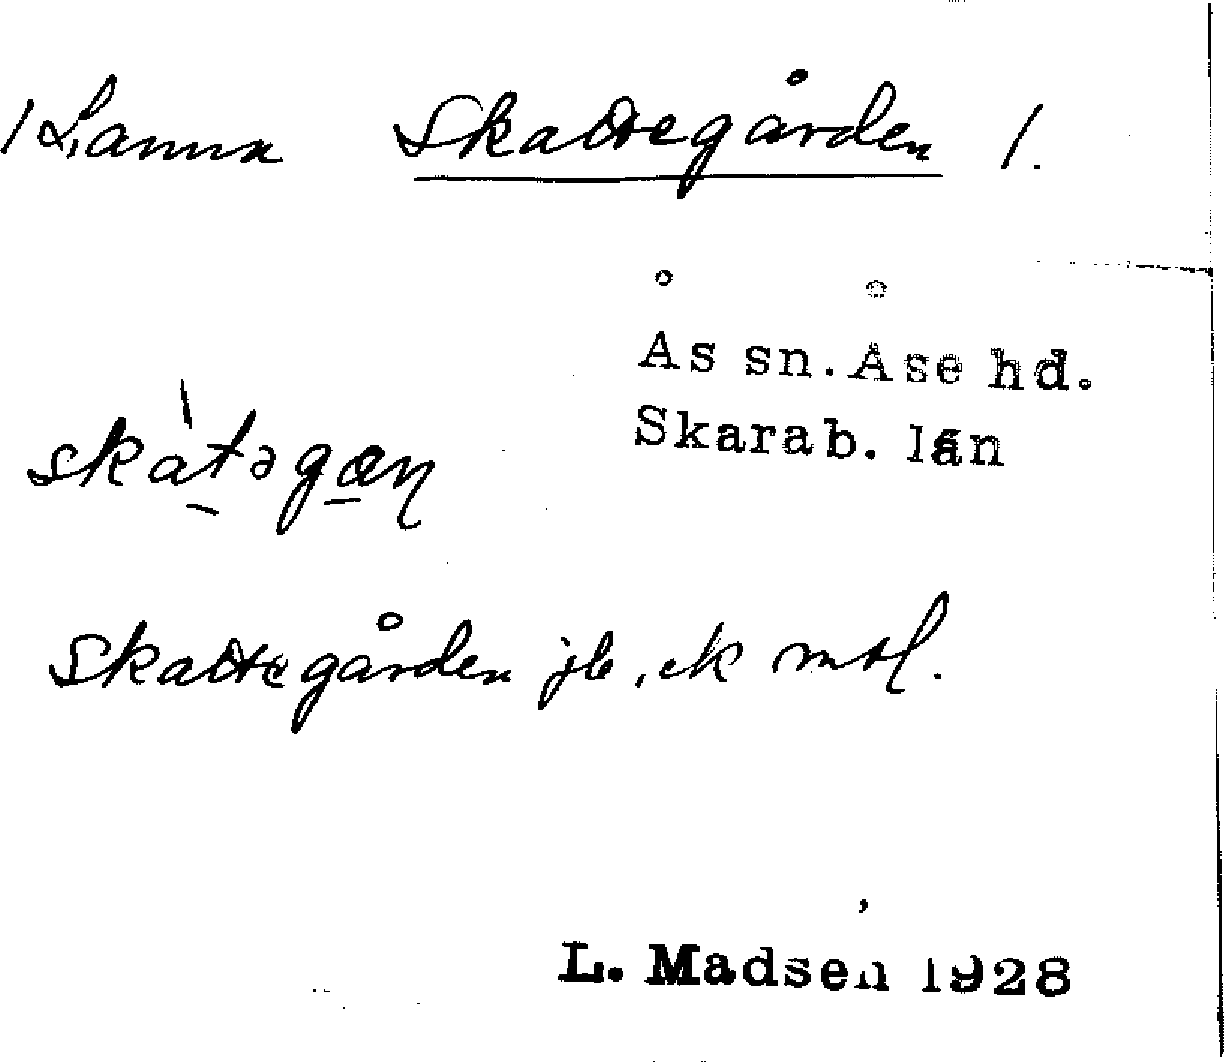 / Lanna Skattegården /.
Ås sn. Åse hd.
Skarab. län
skàtəgan
Skattegården jb, ek mtl.
L. Madsen 1928